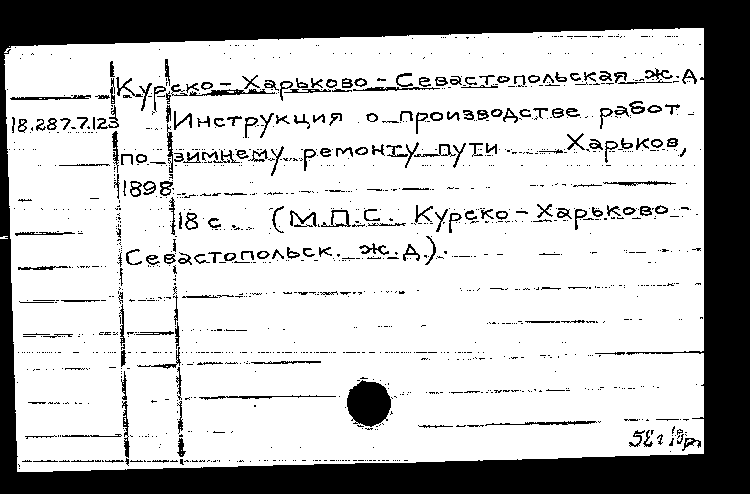 Курско-Харьково-Севастопольская ж.д.
18.287.7.123 Инструкция о производстве работ
по зимнему ремонту пути. Харьков,
1898.
18 с. (М.П.С. Курско-Харьково-
Севастопольск. ж.д.).